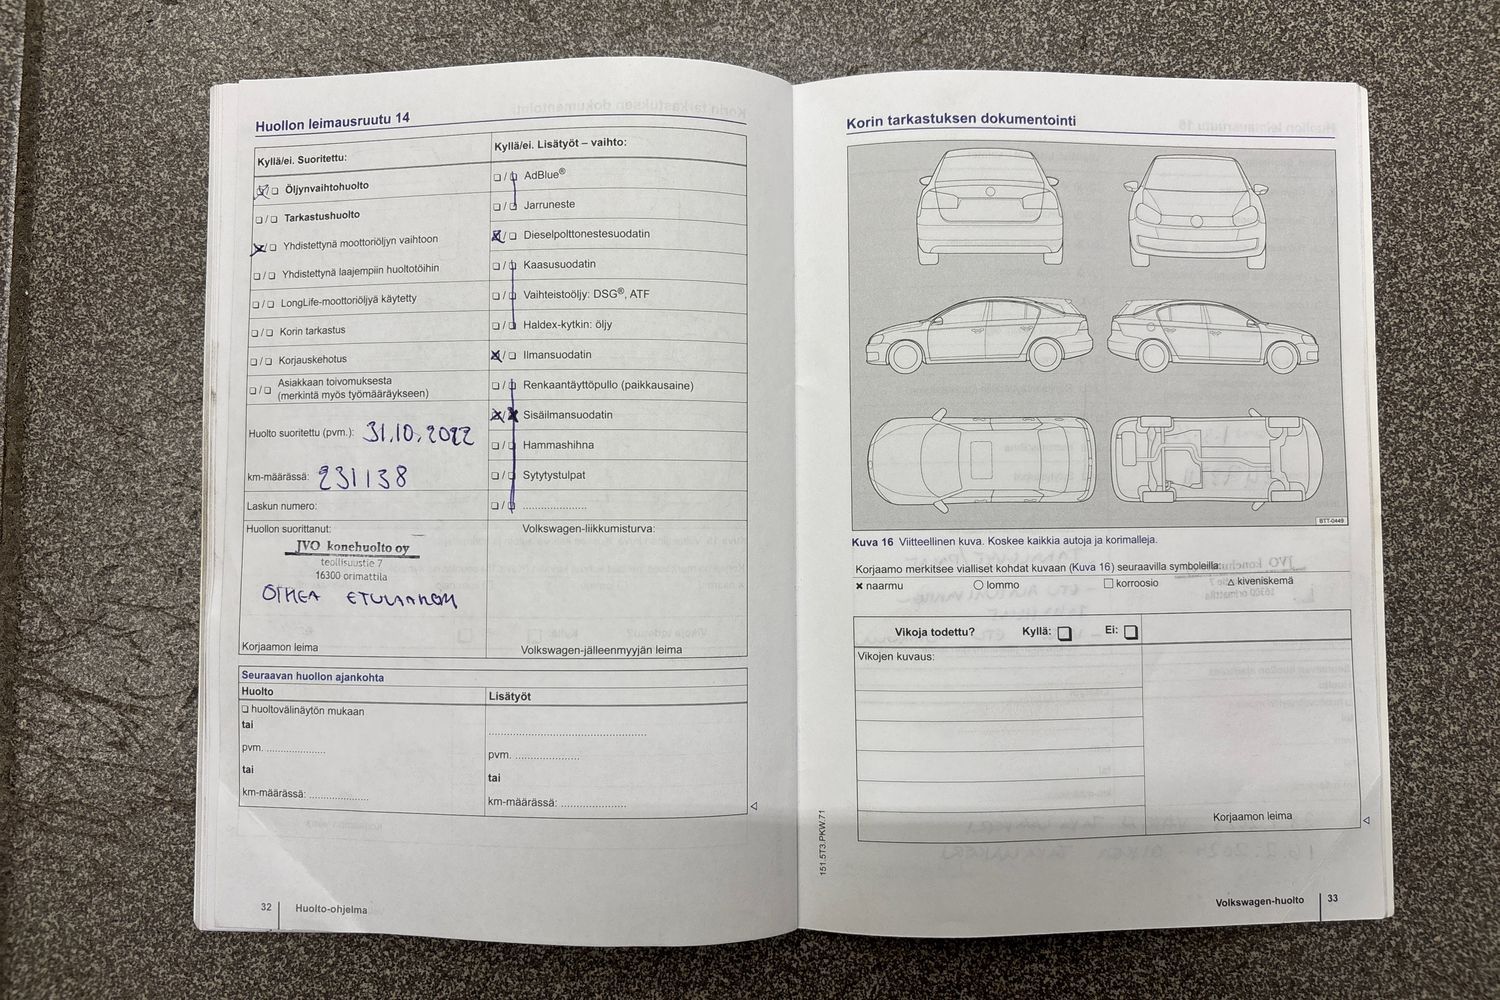 Huollon leimausruutu 14
Kyllä/ei. Suoritettu:
Öljynvaihtohuolto
Tarkastushuolto
Yhdistettynä moottoriöljyn vaihtoon
Yhdistettynä laajempiin huoltotöihin
LongLife-moottoriöljyä käytetty
Korin tarkastus
Korjauskehotus
Asiakkaan toivomuksesta
(merkintä myös työmääräykseen)
Huolto suoritettu (pvm.): 31.10.2022
km-määrässä: 231138
Laskun numero:
Huollon suorittanut:
JVO konehuolto oy
teollisuustie 7
16300 orimattila
OIKEA
Korjaamon leima
Kyllä/ei. Lisätyöt – vaihto:
AdBlue®
Jarruneste
Dieselpolttonestesuodatin
Kaasusuodatin
Vaihteistoöljy: DSG®, ATF
Haldex-kytkin: öljy
Ilmansuodatin
Renkaantäyttöpullo (paikkausaine)
Sisäilmansuodatin
Hammashihna
Sytytystulpat
Volkswagen-liikkumisturva:
Volkswagen-jälleenmyyjän leima
Seuraavan huollon ajankohta
Huolto
huoltovälinäytön mukaan
tai
pvm. ....................
tai
km-määrässä: ....................
Lisätyöt
pvm. ....................
tai
km-määrässä: ....................
32 Huolto-ohjelma
Korin tarkastuksen dokumentointi
BTT-0449
Kuva 16 Viitteellinen kuva. Koskee kaikkia autoja ja korimalleja.
Korjaamo merkitsee vialliset kohdat kuvaan (Kuva 16) seuraavilla symboleilla:
naarmu lommo korroosio kiveniskemä
Vikoja todettu? Kyllä: Ei:
Vikojen kuvaus:
Korjaamon leima
151.5T3.PKW.71
Volkswagen-huolto 33